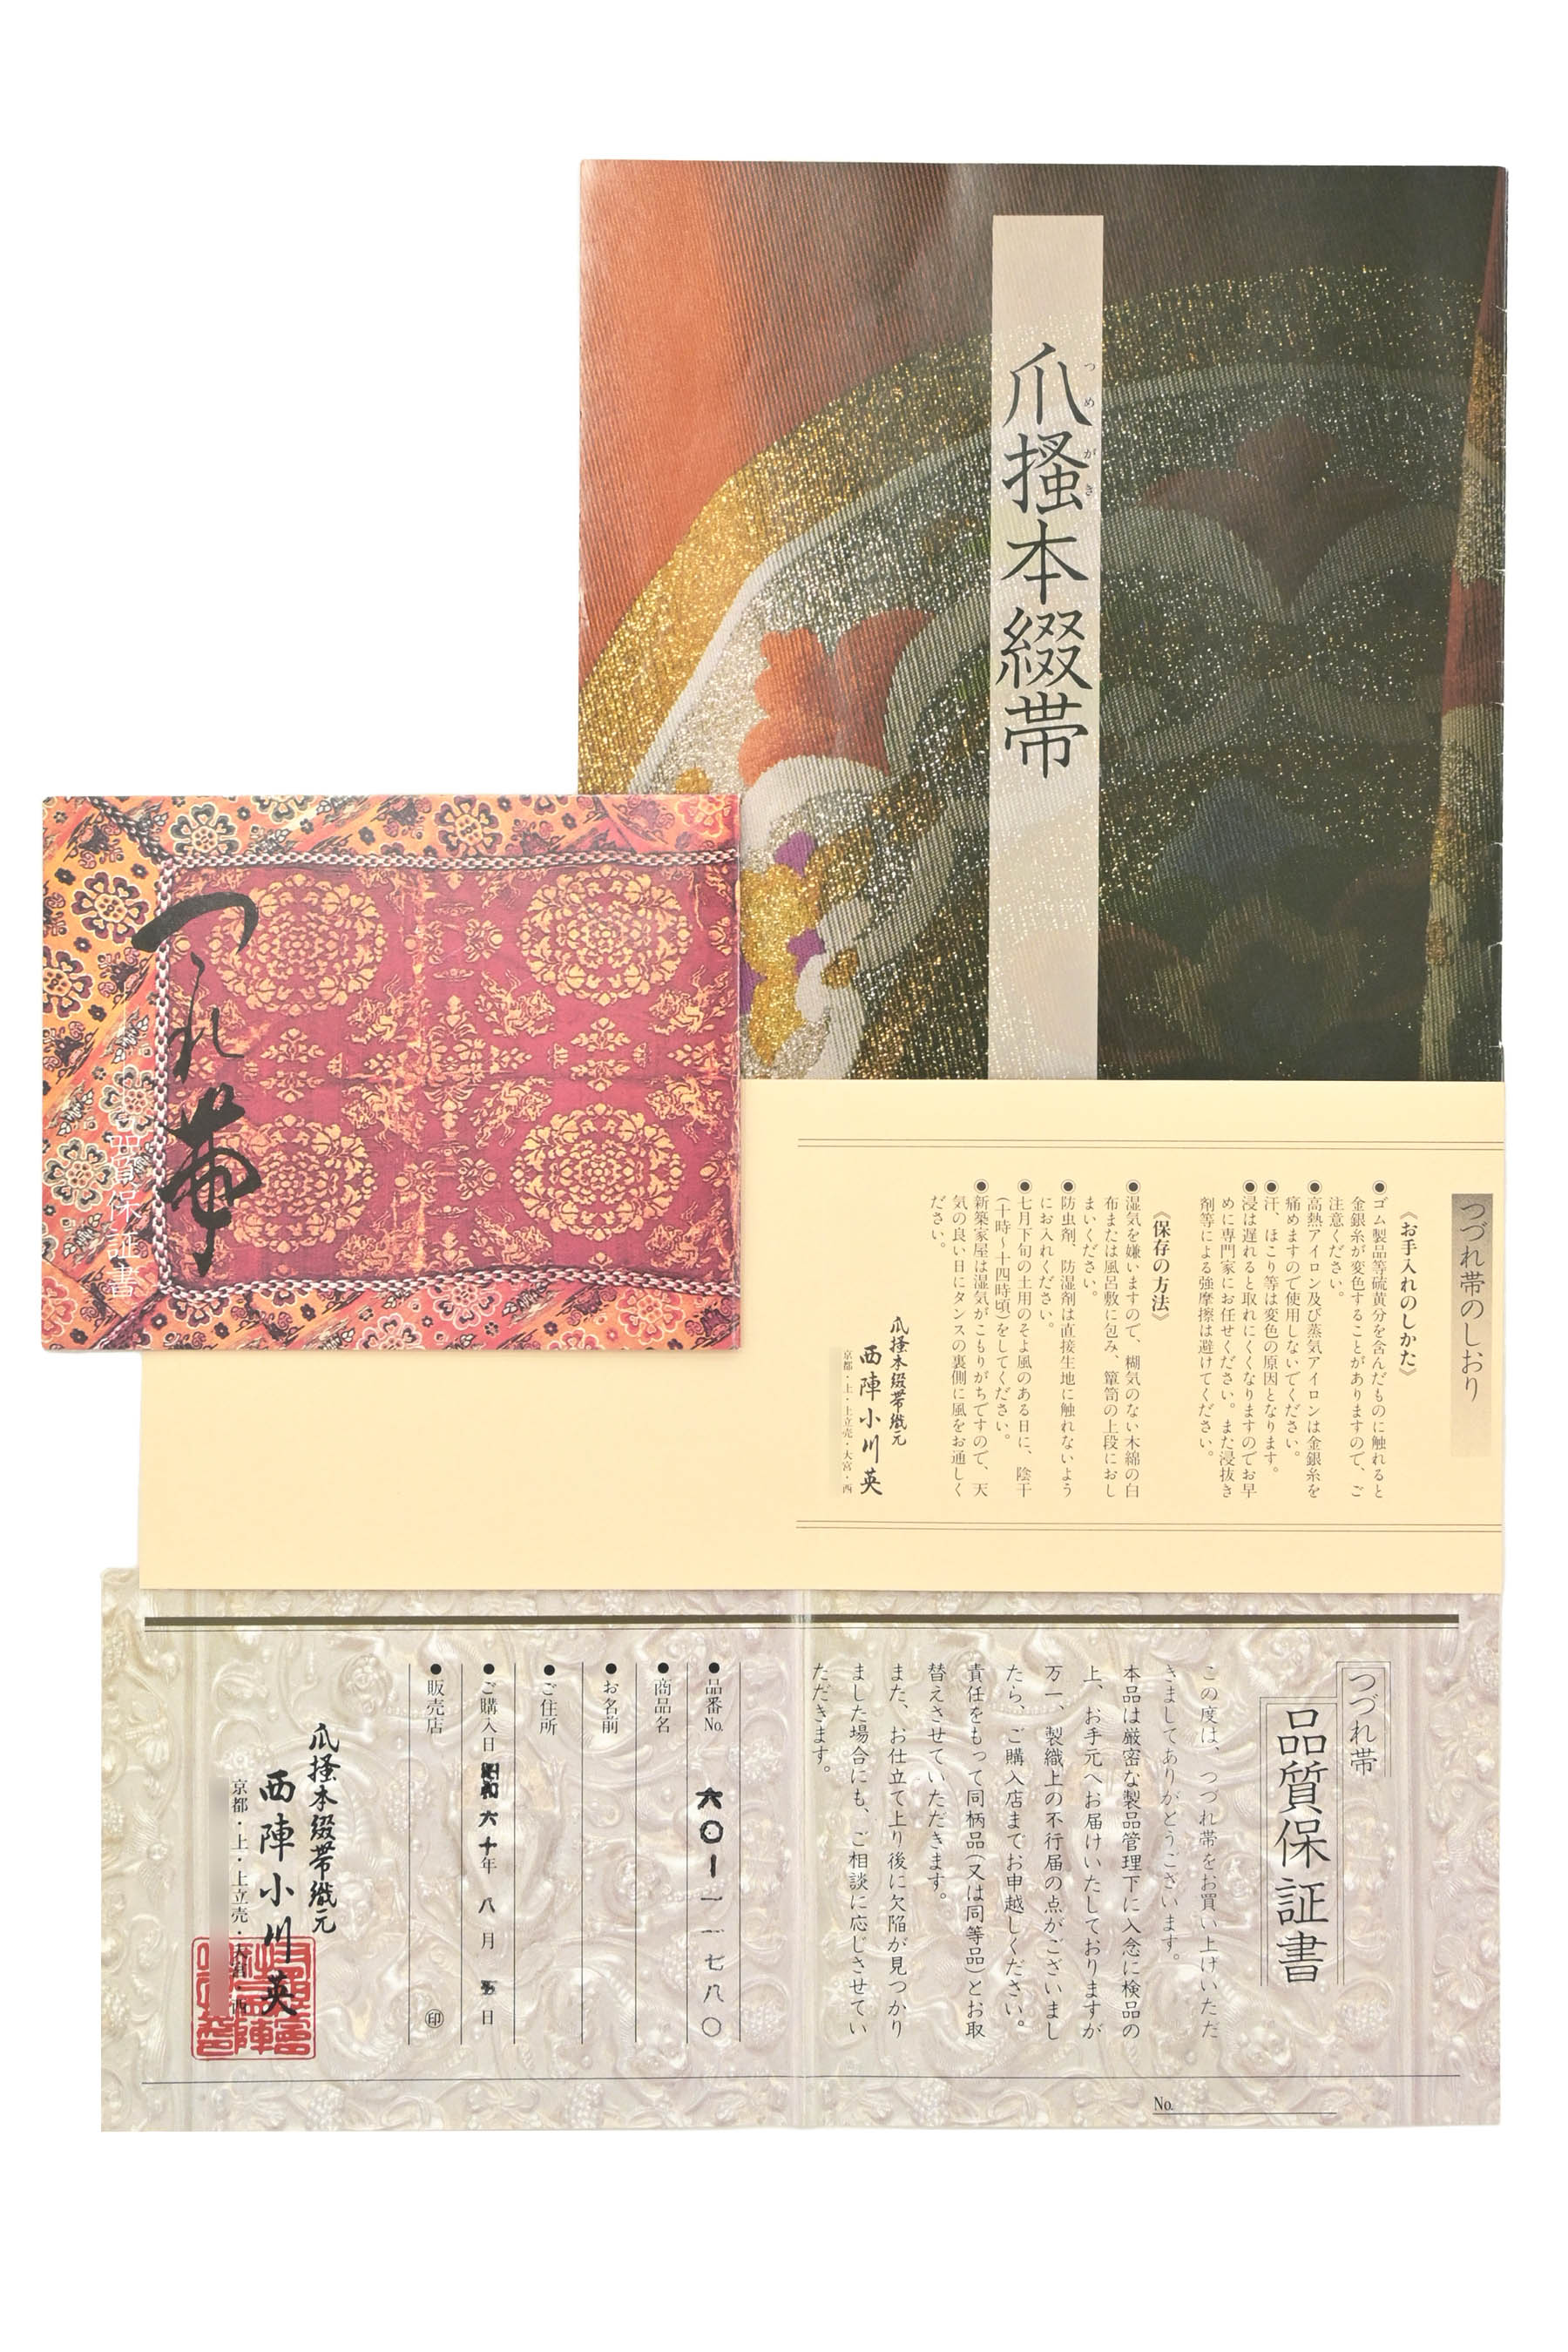 爪搔本綴帯
つめがき
つれ帯
品質保証書
つづれ帯のしおり
《お手入れのしかた》
●ゴム製品等硫黄分を含んだものに触れると
金銀糸が変色することがありますので、ご
注意ください。
●高熱アイロン及び蒸気アイロンは金銀糸を
痛めますので使用しないでください。
●汗、ほこり等は変色の原因となります。
●浸は遅れると取れにくくなりますのでお早
めに専門家にお任せください。また浸抜き
剤等による強摩擦は避けてください。
《保存の方法》
●湿気を嫌いますので、糊気のない木綿の白
布または風呂敷に包み、簞笥の上段におし
まいください。
●防虫剤、防湿剤は直接生地に触れないよう
にお入れください。
●七月下旬の土用のそよ風のある日に、陰干
(十時〜十四時頃)をしてください。
●新築家屋は湿気がこもりがちですので、天
気の良い日にタンスの裏側に風をお通しく
ださい。
爪搔本綴帯織元
西陣小川英
京都・上・上立売・大宮・西
つづれ帯
品質保証書
この度は、つづれ帯をお買い上げいただ
きましてありがとうございます。
本品は厳密な製品管理下に入念に検品の
上、お手元へお届けいたしておりますが
万一、製織上の不行届の点がございまし
たら、ご購入店までお申越しください。
責任をもって同柄品(又は同等品)とお取
替えさせていただきます。
また、お仕立て上り後に欠陥が見つかり
ました場合にも、ご相談に応じさせてい
ただきます。
●品番No. 六〇一一一七八〇
●商品名
●お名前
●ご住所
●ご購入日 昭和六十年 八月 日
●販売店 ㊞
爪搔本綴帯織元
西陣小川英
京都・上・上立売・大宮・西
No.